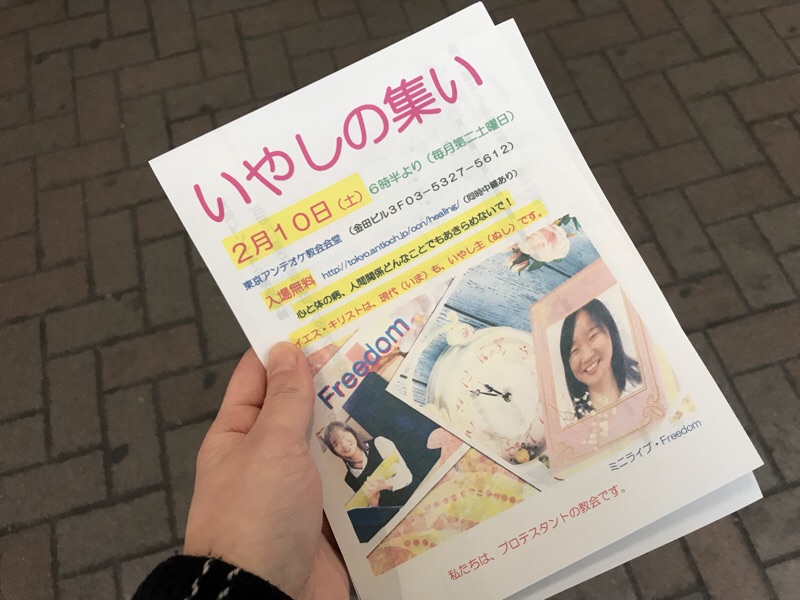 いやしの集い
2月10日(土) 6時半より(毎月第二土曜日)
東京アンテオケ教会会堂 (金田ビル3F03-5327-5612)
入場無料 http://tokyo.antioch.jp/ocn/healing/ (同時中継あり)
心と体の病、人間関係どんなことでもあきらめないで!
イエス・キリストは、現代(いま)も、いやし主(ぬし)です。
Freedom
ミニライブ・Freedom
私たちは、プロテスタントの教会です。